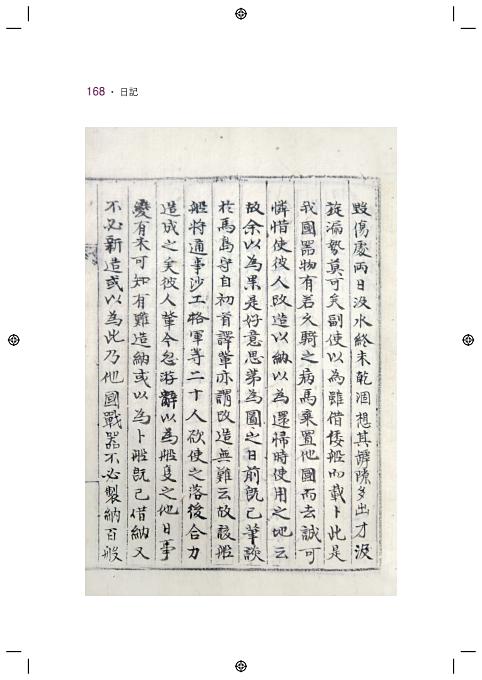 168 · 日記
毀傷處兩日汲水終未乾涸想其罅隙多出才汲
旋漏勢莫可矣副使以為雖借倭船而載卜此是
我國器物有若久騎之病馬棄置他國而去誠可
憐惜使彼人改造以納以為還歸時使用之地云
故余以為果是好意思第為圖之日前旣已筆談
於馬島守自初首譯輩亦謂改造無難云故該船
船將通事沙工格軍等二十人欲使之落後合力
造成之矣彼人輩今忽游辭以為船隻之他日事
變有未可知有難造納或以為卜船旣已借納又
不必新造或以為此乃他國戰器不必製納百般